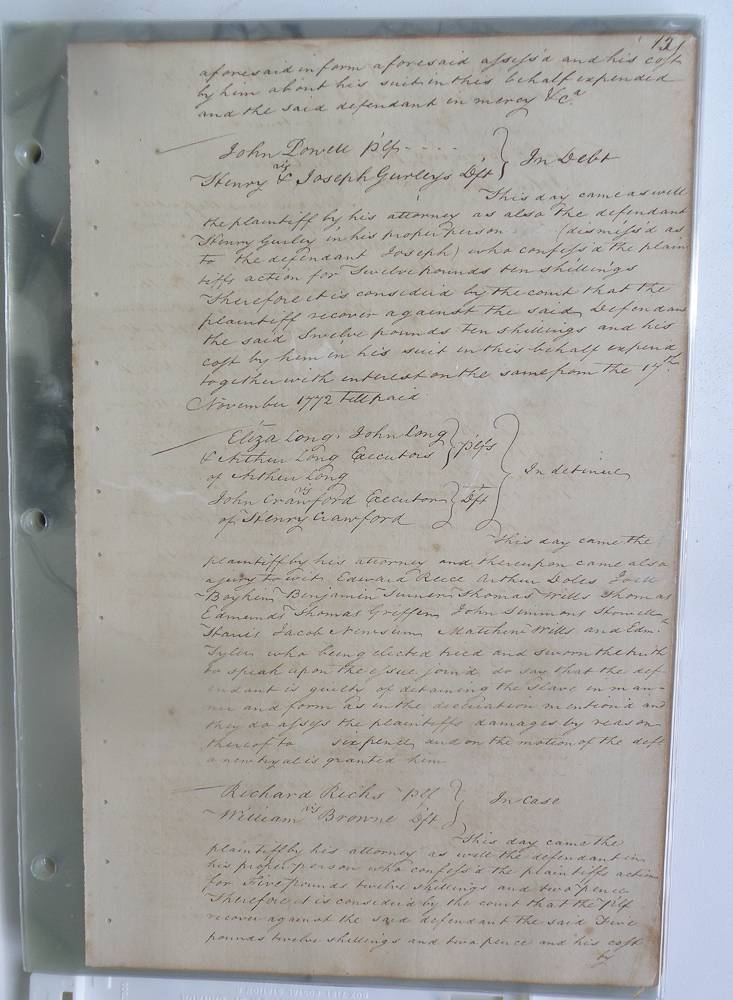 121
aforesaid in form aforesaid assess'd and his cost
by him about his suit in this behalf expended
and the said defendant in mercy &c.a
John Powell plf - - - -
vs
Henry & Joseph Gurleys Dft
In Debt
This day came as well
the plaintiff by his attorney as also the defendant
Henry Gurley in his proper person (dismiss'd as
to the defendant Joseph) who confess'd the plain
tiffs action for Twelve pounds ten shillings
Therefore it is consider'd by the court that the
plaintiff recover against the said Defendant
the said Twelve pounds ten shillings and his
cost by him in his suit in this behalf expend
together with interest on the same from the 17th
November 1772 till paid
Eliza Long, John Long
& Arthur Long Executors
of Arthur Long
plfs
vs
John Crawford Executor
of Henry Crawford
Dft
In detinue
This day came the
plaintiff by his attorney and thereupon came also
a jury to wit, Edward Reece Arthur Doles
Boykin Benjamin Turner Thomas Wills Thomas
Edmunds Thomas Griffen John Simmons Howell
Jacob Newsum Matthew Wills and Edm.d
Tyler who being elected tried and sworn the truth
to speak upon the issue join'd do say that the def
endant is guilty of detaining the slave in man-
ner and form as in the declaration mention'd and
they do assess the plaintiffs damages by reason
thereof to six pence and on the motion of the deft
a new tryal is granted him
Richard Ricks Plf
vs
William Browne Dft
In Case
This day came the
plaintiff by his attorney as well the defendant in
his proper person who confess'd the plaintiffs action
for Five pounds twelve shillings and two pence
Therefore it is consider'd by the court that the plf
recover against the said defendant the said Five
pounds twelve shillings and two pence and his cost
by